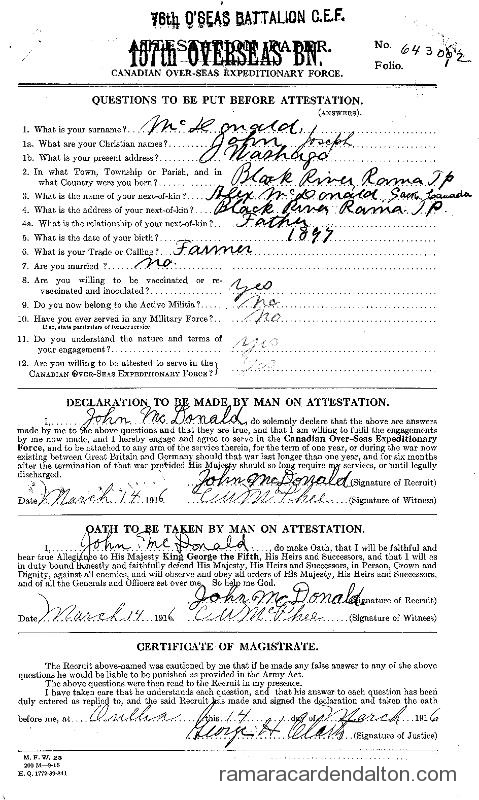 76th O'SEAS BATTALION C.E.F.
ATTESTATION PAPER.
157TH OVERSEAS BN.
No. 643002
Folio.
CANADIAN OVER-SEAS EXPEDITIONARY FORCE.
QUESTIONS TO BE PUT BEFORE ATTESTATION.
(ANSWERS).
1. What is your surname? McDonald,
1a. What are your Christian names? John Joseph
1b. What is your present address? Washago
2. In what Town, Township or Parish, and in what Country were you born? Black River Rama TP
3. What is the name of your next-of-kin? Alex McDonald, Canada
4. What is the address of your next-of-kin? Black River Rama TP.
4a. What is the relationship of your next-of-kin? Father
5. What is the date of your birth? 1897
6. What is your Trade or Calling? Farmer
7. Are you married? no.
8. Are you willing to be vaccinated or re-vaccinated and inoculated? yes
9. Do you now belong to the Active Militia? no
10. Have you ever served in any Military Force? no.
If so, state particulars of former service
11. Do you understand the nature and terms of your engagement? yes
12. Are you willing to be attested to serve in the CANADIAN OVER-SEAS EXPEDITIONARY FORCE? yes
DECLARATION TO BE MADE BY MAN ON ATTESTATION.
I, John McDonald, do solemnly declare that the above are answers
made by me to the above questions and that they are true, and that I am willing to fulfil the engagements
by me now made, and I hereby engage and agree to serve in the Canadian Over-Seas Expeditionary
Force, and to be attached to any arm of the service therein, for the term of one year, or during the war now
existing between Great Britain and Germany should that war last longer than one year, and for six months
after the termination of that war provided His Majesty should so long require my services, or until legally
discharged.
John McDonald (Signature of Recruit)
Date March 14 1916 C W McPhee (Signature of Witness)
OATH TO BE TAKEN BY MAN ON ATTESTATION.
I, John McDonald, do make Oath, that I will be faithful and
bear true Allegiance to His Majesty King George the Fifth, His Heirs and Successors, and that I will as
in duty bound honestly and faithfully defend His Majesty, His Heirs and Successors, in Person, Crown and
Dignity, against all enemies, and will observe and obey all orders of His Majesty, His Heirs and Successors,
and of all the Generals and Officers set over me. So help me God.
John McDonald (Signature of Recruit)
Date March 14 1916 C W McPhee (Signature of Witness)
CERTIFICATE OF MAGISTRATE.
The Recruit above-named was cautioned by me that if he made any false answer to any of the above
questions he would be liable to be punished as provided in the Army Act.
The above questions were then read to the Recruit in my presence.
I have taken care that he understands each question, and that his answer to each question has been
duly entered as replied to, and the said Recruit has made and signed the declaration and taken the oath
before me, at Orillia this 14 day of March 1916
George H Clark (Signature of Justice)
M. F. W. 23
200 M—9-15
H. Q. 1772-39-241
ramaracardendalton.com